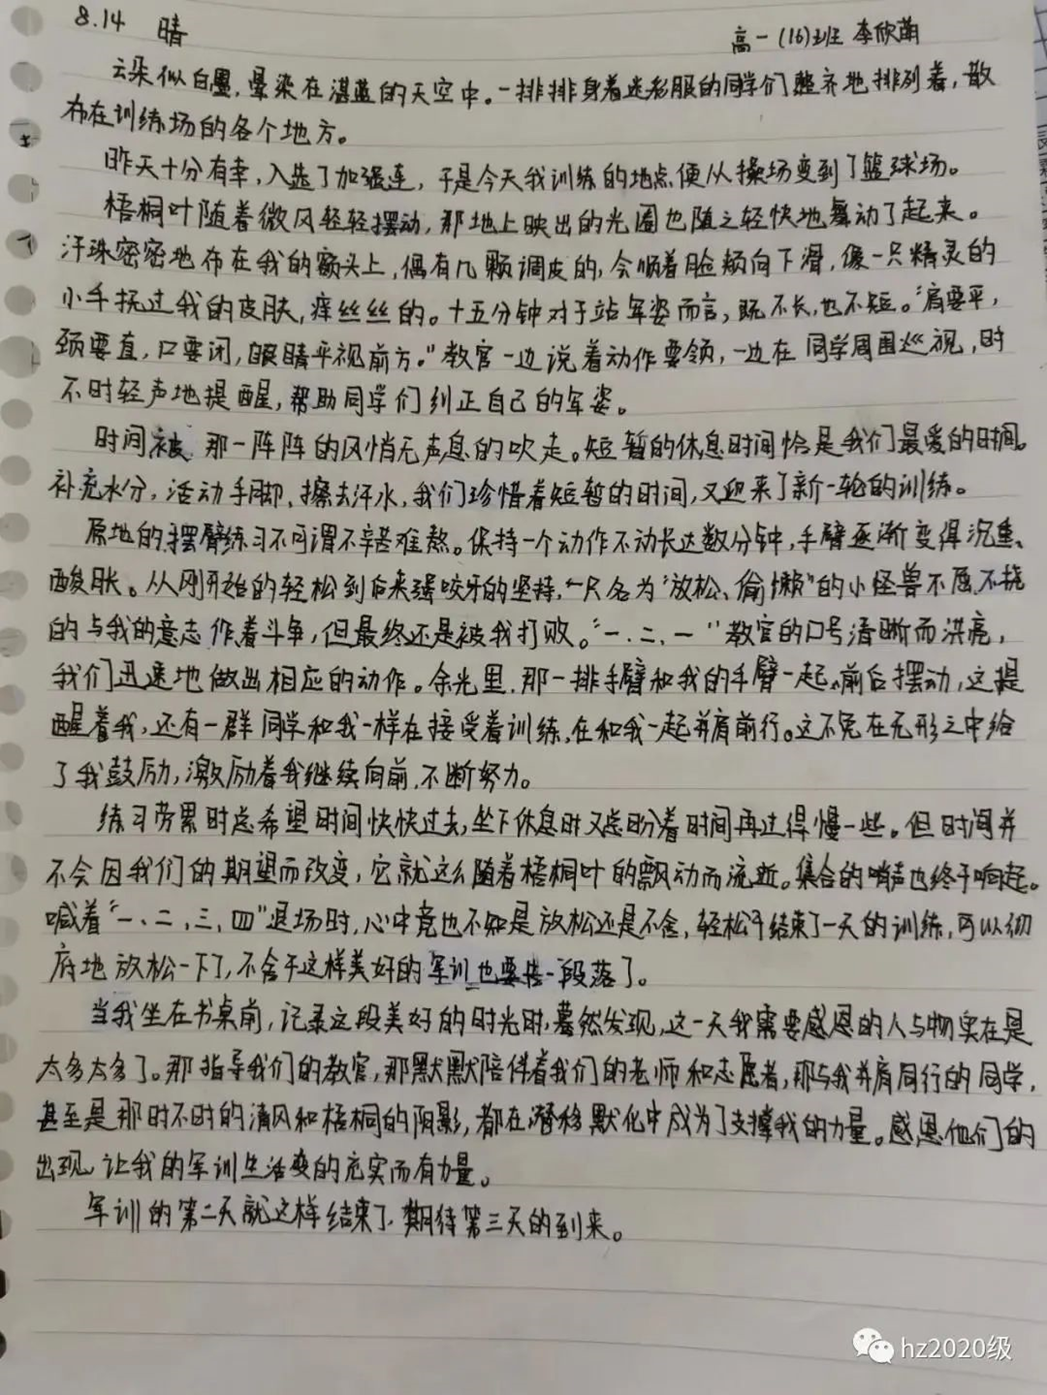 8.14 晴
高一(16)班 李欣萌
云朵似白墨,晕染在湛蓝的天空中。一排排身着迷彩服的同学们整齐地排列着,散
布在训练场的各个地方。
昨天十分有幸,入选了加强连,于是今天我训练的地点便从操场变到了篮球场。
梧桐叶随着微风轻轻摆动,那地上映出的光圈也随之轻快地舞动了起来。
汗珠密密地布在我的额头上,偶有几颗调皮的,会顺着脸颊向下滑,像一只精灵的
小手抚过我的皮肤,痒丝丝的。十五分钟对于站军姿而言,既不长,也不短。“肩要平,
颈要直,口要闭,眼睛平视前方。”教官一边说着动作要领,一边在同学周围巡视,时
不时轻声地提醒,帮助同学们纠正自己的军姿。
时间被那一阵阵的风悄无声息的吹走。短暂的休息时间恰是我们最爱的时间。
补充水分,活动手脚、擦去汗水,我们珍惜着短暂的时间,又迎来了新一轮的训练。
原地的摆臂练习不可谓不辛苦难熬。保持一个动作不动长达数分钟,手臂逐渐变得沉重、
酸胀。从刚开始的轻松到后来强咬牙的坚持,一只名为“放松、偷懒”的小怪兽不屈不挠
的与我的意志作着斗争,但最终还是被我打败。“一、二、一”教官的口号清晰而洪亮,
我们迅速地做出相应的动作。余光里,那一排手臂和我的手臂一起前后摆动,这提
醒着我,还有一群同学和我一样在接受着训练,在和我一起并肩前行。这不免在无形之中给
了我鼓励,激励着我继续向前,不断努力。
练习劳累时总希望时间快快过去,坐下休息时又总盼着时间再过得慢一些。但时间并
不会因我们的期望而改变,它就这么随着梧桐叶的飘动而流逝。集合的哨声也终于响起。
喊着“一、二、三、四”退场时,心中竟也不知是放松还是不舍,轻松于结束了一天的训练,可以彻
底地放松一下了,不舍于这样美好的军训也要告一段落了。
当我坐在书桌前,记录这段美好的时光时,蓦然发现,这一天我需要感恩的人与物实在是
太多太多了。那指导我们的教官,那默默陪伴着我们的老师和志愿者,那与我并肩同行的同学,
甚至是那时不时的清风和梧桐的阴影,都在潜移默化中成为了支撑我的力量。感恩他们的
出现,让我的军训生活变的充实而有力量。
军训的第二天就这样结束了,期待第三天的到来。
hz2020级